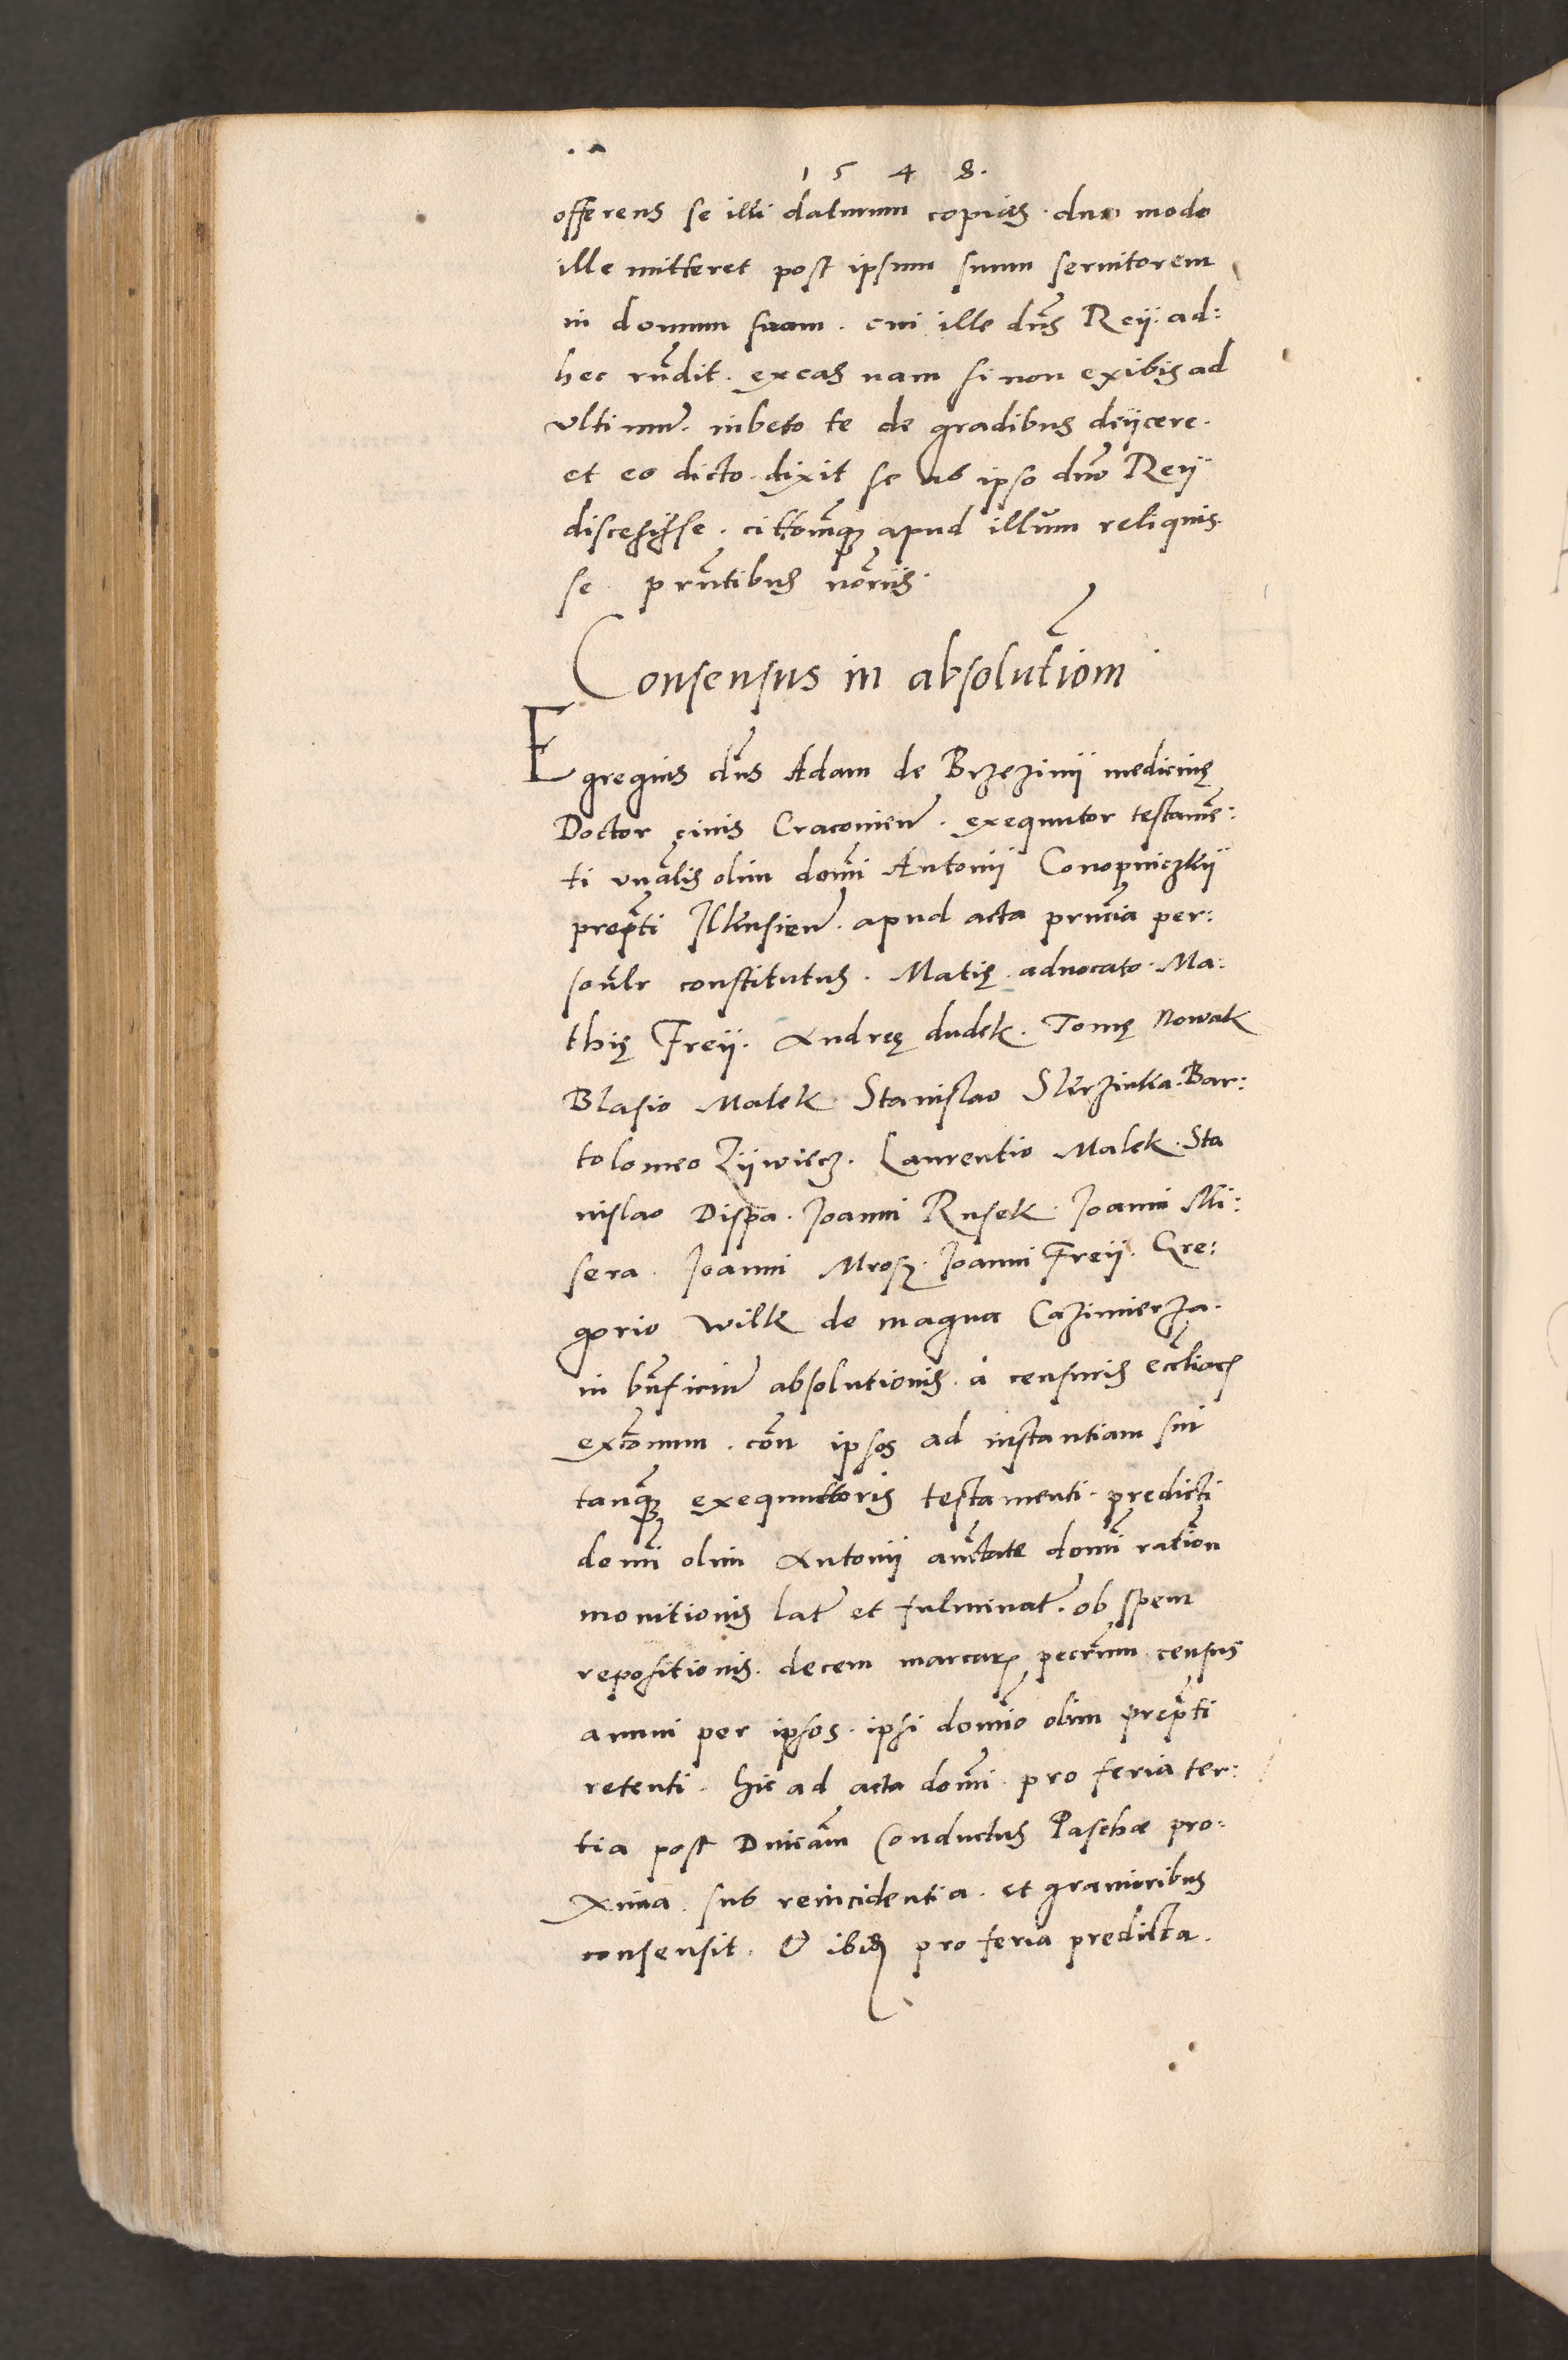 1548.
offerens se illi daturum copias. duo modo
ille mitteret post ipsum suum seruitorem
in domum suam. cui ille dns Reij. ad:
hec rndit. exeas nam si non exibis ad
vltimum. iubebo te de gradibus deijcere.
et eo dicto. dixit se ab ipso dno Reij
discessisse. cittonemq apud illum reliquis
se prntibus notriis.
Consensus in absolutiom
Egregius dns Adam de Brzezinij medicinę
Doctor ciuis Cracouien. exequutor testame:
ti vnalis olim domi Antonij Conopniczkij
prepti Ilkusien. apud acta prncia per:
sonlr constitutus. Matię aduocato. Ma:
thię Freij. Andreę dudek. Tomę Nowak
Blasio Malek. Stanislao Skrzinka. Bar:
tolomeo Zijwiecz. Laurentio Malek. Sta
nislao Dispa. Joanni Rusek. Joanni Mi:
sera. Joanni Mrosz. Joanni Freij. Gre:
gorio Wilk de magna Cazimierza.
in bnficium absolutionis. a censuris ecctiar
excomum. con ipsos ad instantiam sui
tanq exequuttoris testamenti. predicti
domi olim Antonij auctate domi ration
monitionis lat et fulminat. ob spem
repositionis. decem marcar pecrum census
annui per ipsos. ipsi domio olim prepti
retenti. hic ad acta domi. pro feria ter:
tia post Dnicam Conductus Paschae pro:
xima. sub reincidentia. et grauioribus
consensit. & ibid pro feria predicta.